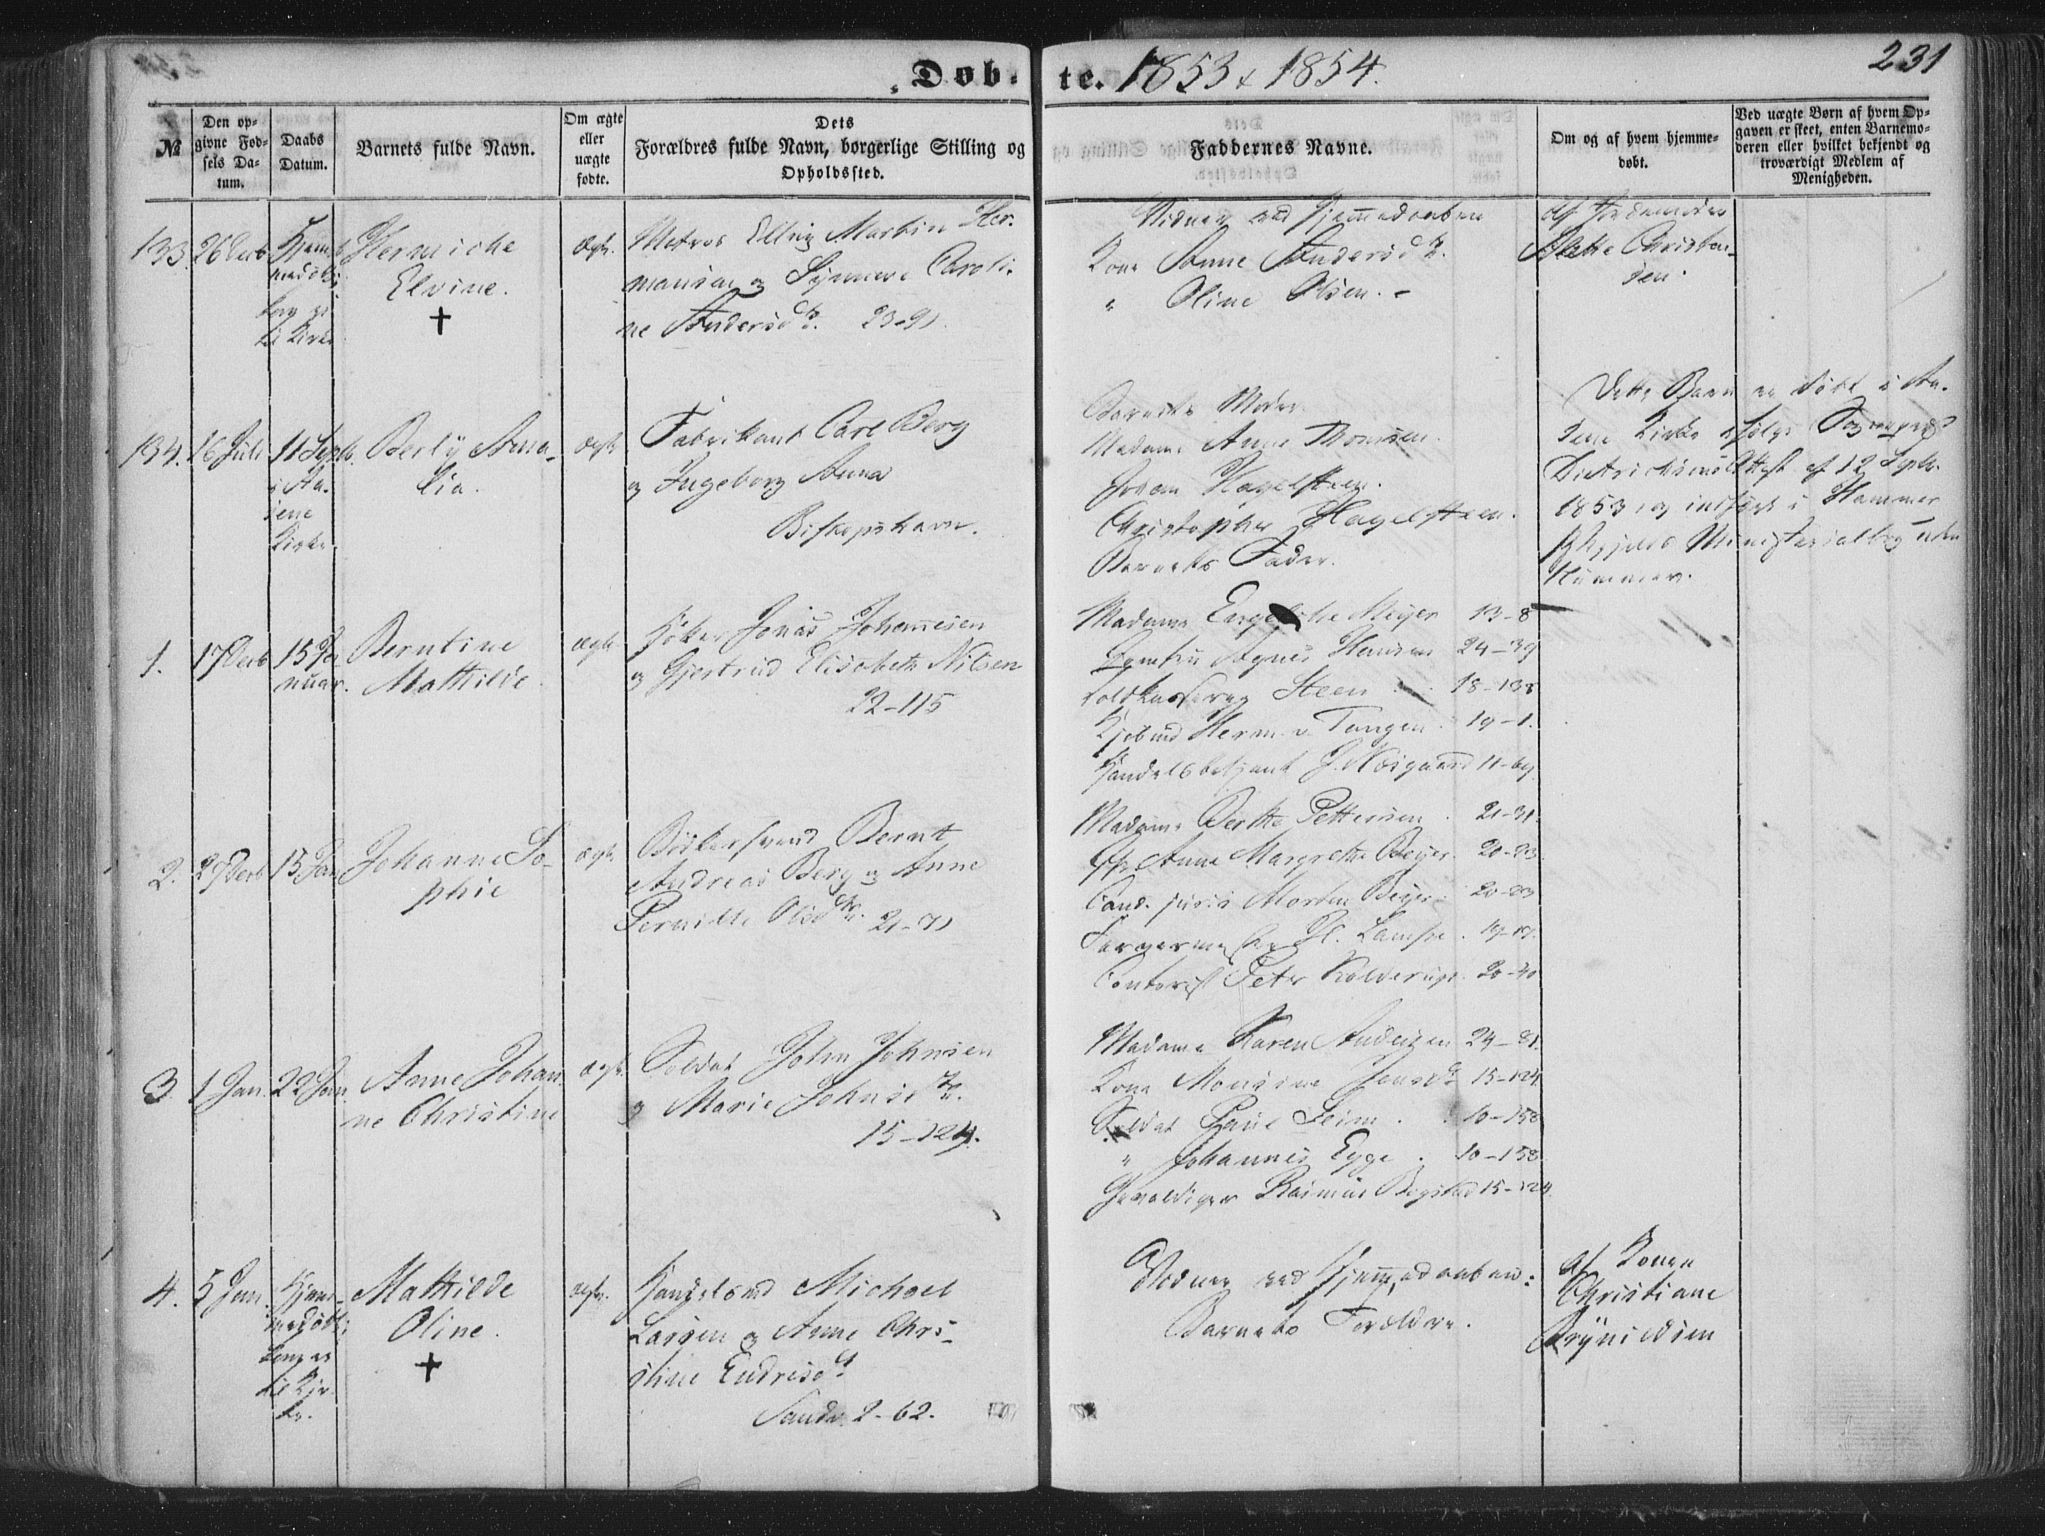 Døb- te. 1853 & 1854. 231
№
Den op-
givne Fød-
sels Da-
tum.
Daabs
Datum.
Barnets fulde Navn.
Om ægte
eller
uægte
fødte.
Dets
Forældres fulde Navn, borgerlige Stilling og
Opholdssted.
Faddernes Navne.
Om og af hvem hjemme-
døbt.
Ved uægte Børn af hvem Op-
gaven er skeet, enten Barnemo-
deren eller hvilket bekjendt og
troværdigt Medlem af
Menigheden.
133. 26 Decb
Hjem-
medøbt;
Hermiche
Elvine.
†
ægte
Matros Elling Martin Her-
mansen og Synneve Caroli-
ne Andersdtr. 23-91.
Vidner ved Hjemmedaaben
Kone Anne Andersdtr.
" Oline Olsen. -
af Jordemoder
Mette Christen-
sen.
134. 16 Juli
11 Septb.
i Aa-
sene
Kirke.
Berly Ama-
lia.
ægte
Fabrikant Carl Berg
og Ingeborg Anna
Biskopshavn.
Barnets Moder.
Madame Anne Thomsen.
Johan Hagelsteen.
Christopher Hagelsteen.
Barnets Fader.
Dette Barn er døbt i Aa-
sene Kirke ifølge Sognepræst
Dietrichsens Attest af 12 Septb.
1853, og indført i Hammer
Præstegjelds Ministerialbog uden
Nummer.
1. 17 Decb
15 Ja-
nuar.
Berntine
Mathilde.
ægte
Høker Jonas Johannesen
og Gjertrud Elisabeth Nilsen
22-115
Madame Engelche Meyer 13-8
Jomfru Agnes Hansen 24-39
Toldkasserer Steen 18-138
Kjøbmd Herm. v. Tangen 19-1.
Handelsbetjent J. Næsgaard 11-69
2. 29 Decb
15 Jan
Johanne So-
phie
ægte
Bødkersvend Bernt
Andreas Berg og Anne
Pernille Olsdtr. 21-71
Madame Berthe Pettersen. 21-31.
Anne Margrethe Beyer. 20-23
Cand. juris Morten Beyer. 20-23
Lampe. 19-19.
Contorist Peter Kolderup. 20-40
3. 1 Jan.
22 Jan.
Anne Johan-
ne Christine
ægte
Soldat John Johnsen
og Marie Johnsdtr.
15-124.
Madame Karen Andersen 24-81.
Kone Monsine Jensdtr 15-124.
Soldat Paul Leim. 10-158
" Johannes Egge. 10-158
Gevaldiger Rasmus Bogstad 15-124.
4. 5 Jan.
Hjem-
medøbt;
Mathilde
Oline.
†
ægte
Handelsmd Michael
Larsen og Anne Chri-
stine Endresdtr
Sandv. 2-62.
Vidner ved Hjemmedaaben:
Barnets Forældre.
af Konen
Christiane
Brynildsen